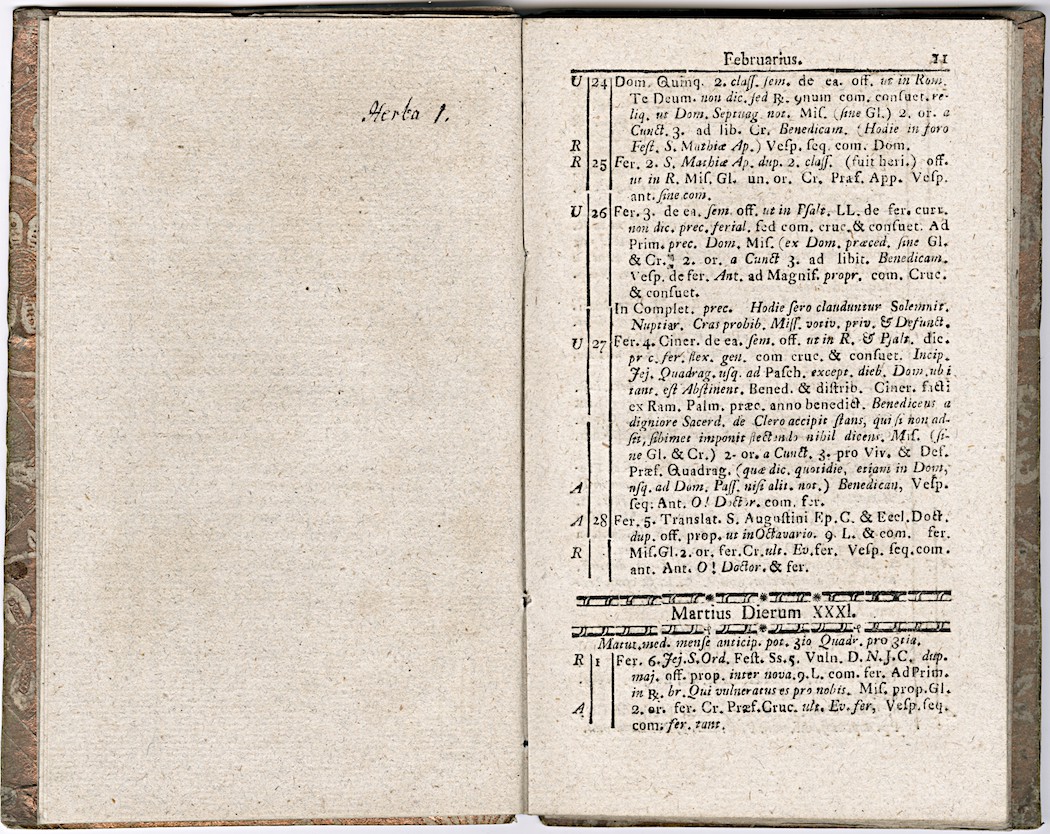 Herba 1.
Februarius. 11
U 24 Dom. Quinq. 2. claſſ. ſem. de ea. off. ut in Rom.
Te Deum. non dic. ſed ℞. 9num com. conſuet. re-
liq. ut Dom. Septuag not. Miſ. (ſine Gl.) 2. or. a
Cunct. 3. ad lib. Cr. Benedicam. (Hodie in foro
R Feſt. S. Mathiæ Ap.) Veſp. ſeq. com. Dom.
R 25 Fer. 2. S. Mathiæ Ap. dup. 2. claſſ. (fuit heri.) off.
ut in R. Miſ. Gl. un. or. Cr. Præf. App. Veſp.
ant. ſine com.
U 26 Fer. 3. de ea. ſem. off. ut in Pſalt. LL. de fer. curr.
non dic. prec. ferial. ſed com. cruc. & conſuet. Ad
Prim. prec. Dom. Miſ. (ex Dom. præced. ſine Gl.
& Cr. 2. or. a Cunct 3. ad libit. Benedicam.
Veſp. de fer. Ant. ad Magnif. propr. com. Cruc.
& conſuet.
In Complet. prec. Hodie ſero clauduntur Solemnit.
Nuptiar. Cras prohib. Miſſ. votiv. priv. & Defunct.
U 27 Fer. 4. Ciner. de ea. ſem. off. ut in R. & Pſalt. dic.
pr c. fer. flex. gen. com cruc. & conſuet. Incip.
Jej. Quadrag. uſq. ad Paſch. except. dieb. Dom. ub i
tant. eſt Abſtinent. Bened. & diſtrib. Ciner. facti
ex Ram. Palm. præc. anno benedict. Benedicens a
digniore Sacerd. de Clero accipit ſtans, qui ſi non ad-
ſit, ſibimet imponit flectendo nihil dicens. Miſ. (ſi-
ne Gl. & Cr.) 2. or. a Cunct. 3. pro Viv. & Def.
Præf. Quadrag. (quæ dic. quotidie, etiam in Dom,
A uſq. ad Dom. Paſſ. niſi alit. not.) Benedican, Veſp.
ſeq. Ant. O! Doctor. com. fer.
A 28 Fer. 5. Translat. S. Auguſtini Ep. C. & Eccl. Doct.
dup. off. prop. ut in Octavario. 9. L. & com. fer.
R Miſ. Gl. 2. or. fer. Cr. ult. Ev. fer. Veſp. ſeq. com.
ant. Ant. O! Doctor. & fer.
Martius Dierum XXXI.
Matut. med. menſe anticip. pot. 3io Quadr. pro 3tia.
R 1 Fer. 6. Jej. S. Ord. Feſt. Ss. 5. Vuln. D. N. J. C. dup.
maj. off. prop. inter nova. 9. L. com. fer. Ad Prim.
in ℞. br. Qui vulneratus es pro nobis. Miſ. prop. Gl.
A 2. or. fer. Cr. Præf. Cruc. ult. Ev. fer, Veſp. ſeq.
com. fer. tant.